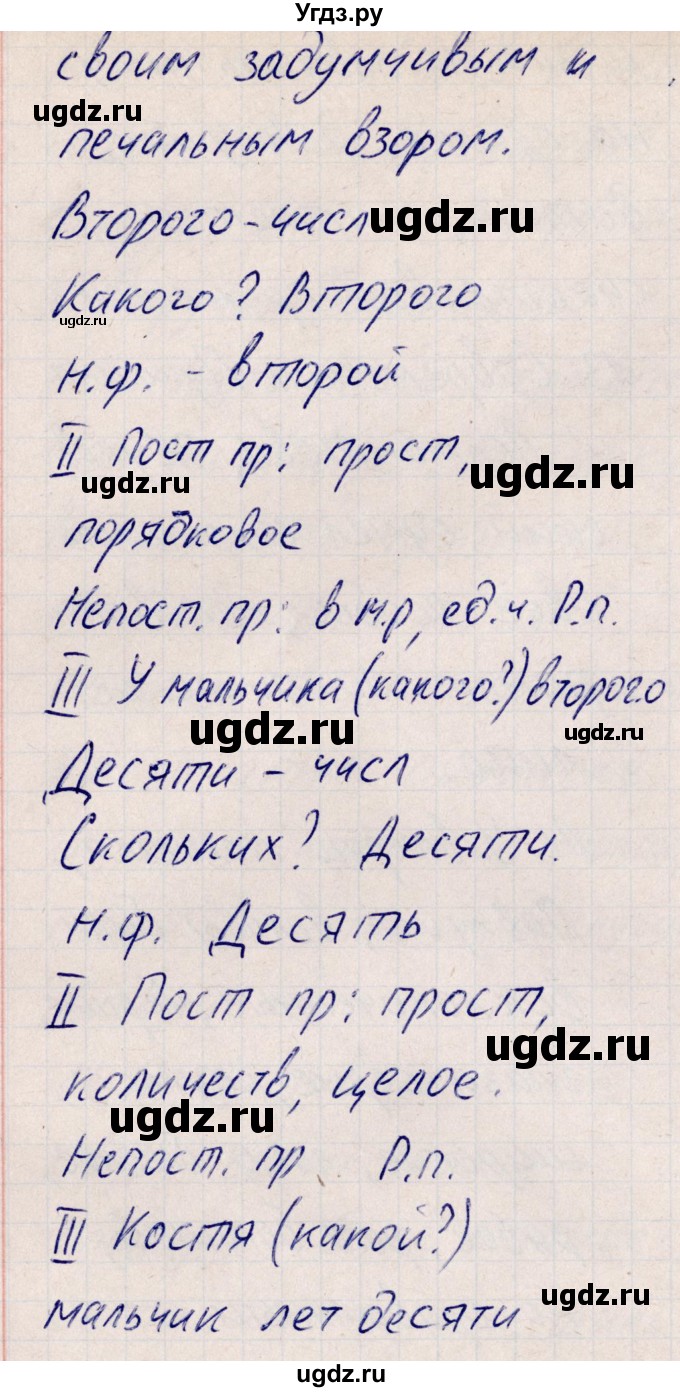 Угдз.ру
своим задумчивым и
ugdz.ru
печальным взором.
Второго - числ
ugdz.ru
Какого? Второго
ugdz.ru
н.ф. - второй
II Пост пр: прост,
ugdz.ru
ugdz.ru
порядковое
Непост. пр: в м.р, ед.ч. Р.п.
III У мальчика (какого?) второго
ugdz.ru
ugdz.ru
Десяти - числ
Скольких? Десяти.
н.ф. Десять
II Пост пр: прост,
ugdz.ru
количеств, целое.
ugdz.ru
Непост. пр Р.п.
III Костя (какой?)
ugdz.ru
мальчик лет десяти
ugdz.ru